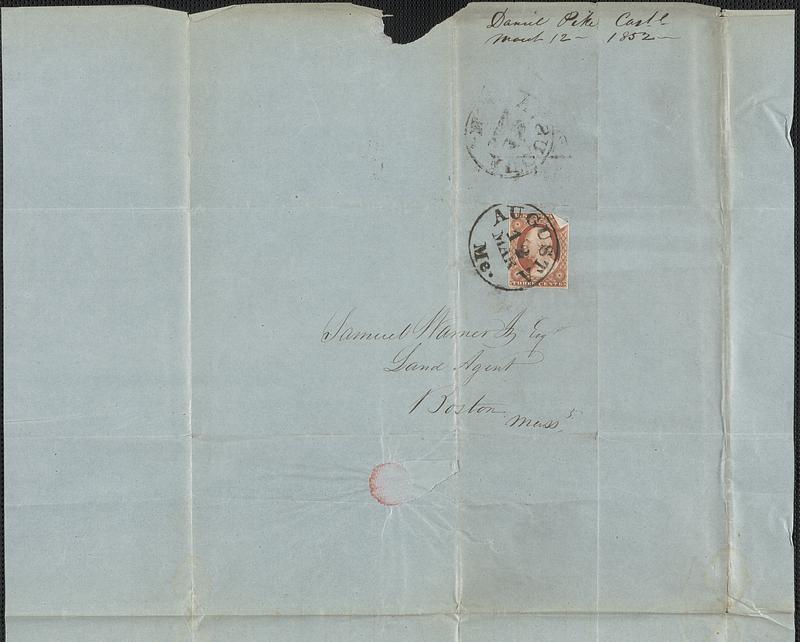 Daniel Pike Cast.
March 12 - 1852 -
AUGUSTA
AUGUSTA
12
MAR
Me.
THREE CENTS
Samuel Warner Jr Esq
Land Agent
Boston
Mass.